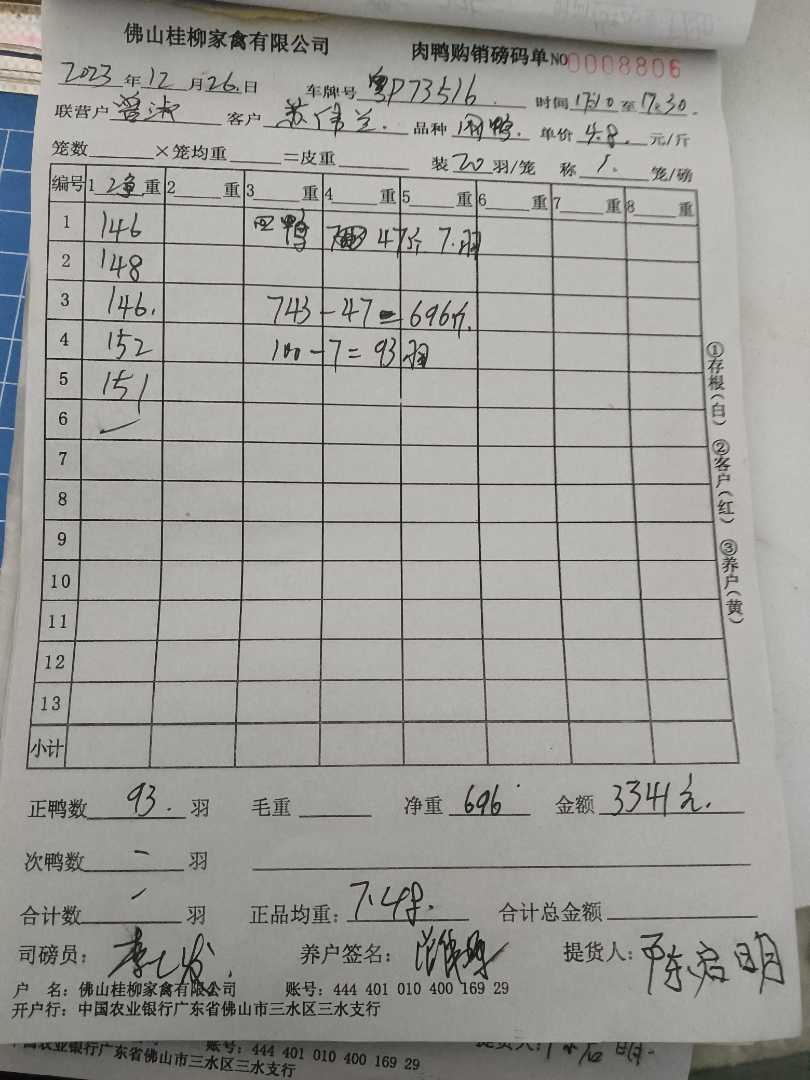 佛山桂柳家禽有限公司 肉鸭购销磅码单 NO 0008806
2023年12月26日 车牌号 粤P73516 时间 17:10 至 17:30
联营户 客户 苏伟兰 品种 闲鸭 单价 4.8 元/斤
笼数 ×笼均重 =皮重 装 20 羽/笼 称 1. 笼/磅
编号 1 净重 2 重 3 重 4 重 5 重 6 重 7 重 8 重
1 146 鸭 47斤 7.羽
2 148
3 146. 743-47=696斤.
4 152 100-7=93羽
5 151
6
7
8
9
10
11
12
13
小计
正鸭数 93. 羽 毛重 净重 696 金额 3341元.
次鸭数 - 羽
合计数 羽 正品均重: 7.48. 合计总金额
司磅员: 养户签名: 提货人: 陈启明
户 名: 佛山桂柳家禽有限公司 账号: 444 401 010 400 169 29
开户行: 中国农业银行广东省佛山市三水区三水支行
①存根(白) ②客户(红) ③养户(黄)
账号: 444 401 010 400 169 29 提货人:
中国农业银行广东省佛山市三水区三水支行